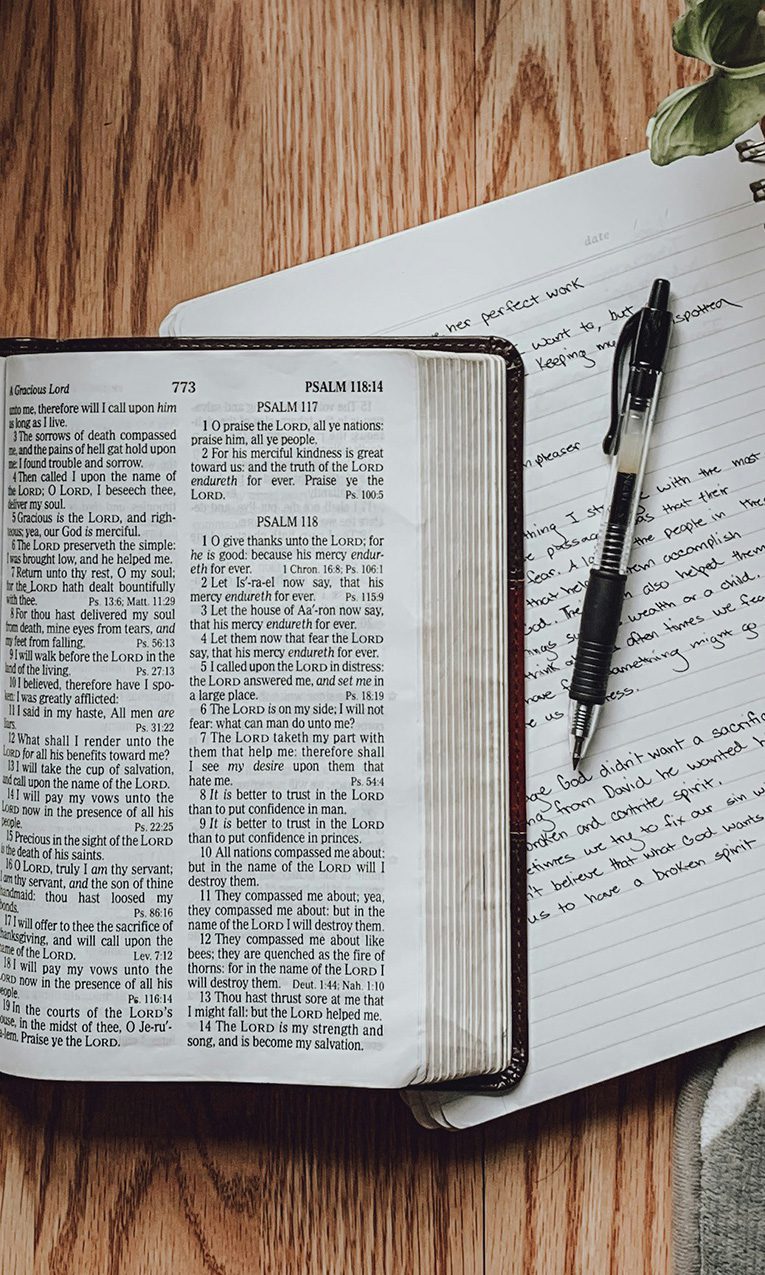 A Gracious Lord
773
PSALM 118:14
unto me, therefore will I call upon him
as long as I live.
3 The sorrows of death compassed
me, and the pains of hell gat hold upon
me: I found trouble and sorrow.
4 Then called I upon the name of
the LORD; O LORD, I beseech thee,
deliver my soul.
5 Gracious is the LORD, and righ-
teous; yea, our God is merciful.
6 The LORD preserveth the simple:
I was brought low, and he helped me.
7 Return unto thy rest, O my soul;
for the LORD hath dealt bountifully
with thee. Ps. 13:6; Matt. 11:29
8 For thou hast delivered my soul
from death, mine eyes from tears, and
my feet from falling. Ps. 56:13
9 I will walk before the LORD in the
land of the living. Ps. 27:13
10 I believed, therefore have I spo-
ken: I was greatly afflicted:
11 I said in my haste, All men are
liars. Ps. 31:22
12 What shall I render unto the
LORD for all his benefits toward me?
13 I will take the cup of salvation,
and call upon the name of the LORD.
14 I will pay my vows unto the
LORD now in the presence of all his
people. Ps. 22:25
15 Precious in the sight of the LORD
is the death of his saints.
16 O LORD, truly I am thy servant;
I am thy servant, and the son of thine
handmaid: thou hast loosed my
bonds. Ps. 86:16
17 I will offer to thee the sacrifice of
thanksgiving, and will call upon the
name of the LORD. Lev. 7:12
18 I will pay my vows unto the
LORD now in the presence of all his
people. Ps. 116:14
19 In the courts of the LORD'S
house, in the midst of thee, O Je-ru'-
sa-lem. Praise ye the LORD.
PSALM 117
1 O praise the LORD, all ye nations:
praise him, all ye people.
2 For his merciful kindness is great
toward us: and the truth of the LORD
endureth for ever. Praise ye the
LORD. Ps. 100:5
PSALM 118
1 O give thanks unto the LORD; for
he is good: because his mercy endur-
eth for ever. 1 Chron. 16:8; Ps. 106:1
2 Let Is'-ra-el now say, that his
mercy endureth for ever. Ps. 115:9
3 Let the house of Aa'-ron now say,
that his mercy endureth for ever.
4 Let them now that fear the LORD
say, that his mercy endureth for ever.
5 I called upon the LORD in distress:
the LORD answered me, and set me in
a large place. Ps. 18:19
6 The LORD is on my side; I will not
fear: what can man do unto me?
7 The LORD taketh my part with
them that help me: therefore shall
I see my desire upon them that
hate me. Ps. 54:4
8 It is better to trust in the LORD
than to put confidence in man.
9 It is better to trust in the LORD
than to put confidence in princes.
10 All nations compassed me about:
but in the name of the LORD will I
destroy them.
11 They compassed me about; yea,
they compassed me about: but in the
name of the LORD I will destroy them.
12 They compassed me about like
bees; they are quenched as the fire of
thorns: for in the name of the LORD I
will destroy them. Deut. 1:44; Nah. 1:10
13 Thou hast thrust sore at me that
I might fall: but the LORD helped me.
14 The LORD is my strength and
song, and is become my salvation.
date
her perfect work
want to, but
Keeping
pleaser
thing I with the most
that their
fear. A the people in
that them accomplish
God. also helped them
wealth or a child.
think often times we
have something might go
us
God didn't want a
from David he wanted
broken and contrite spirit.
we try to fix our sin
believe that what God wants
us to have a broken spirit